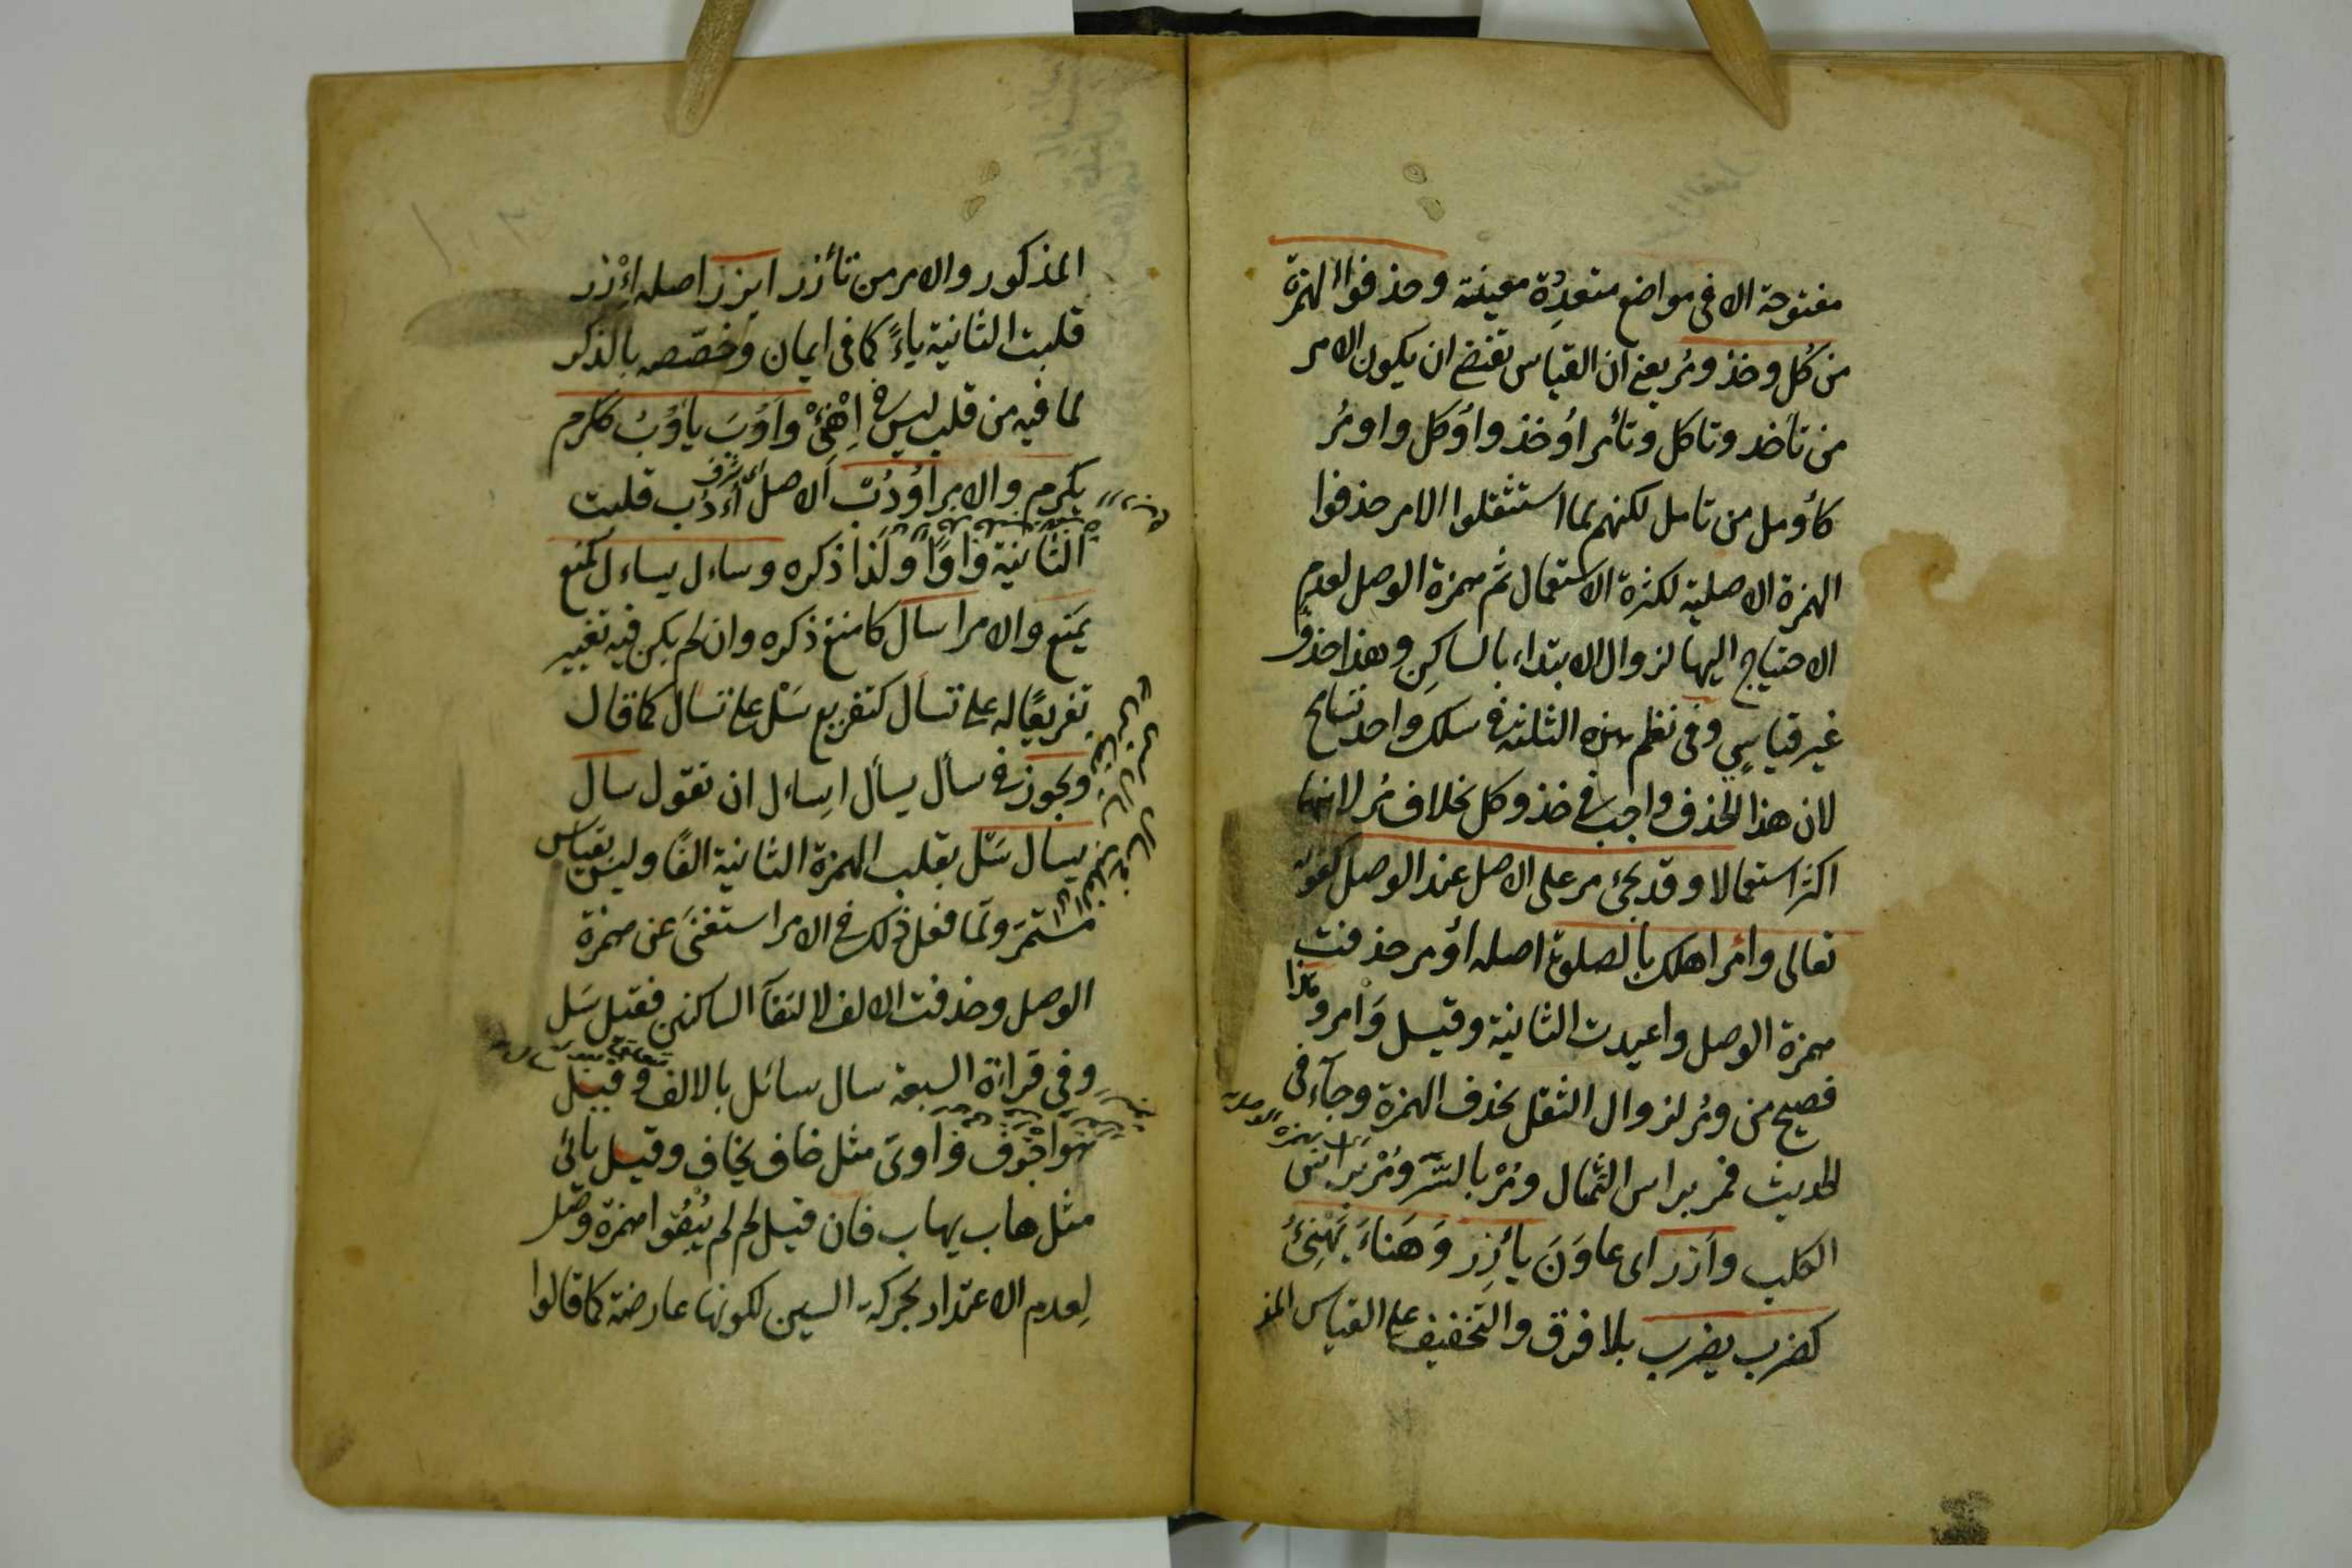 مفتوحة الا فى مواضع متعدِدة معينة وحذفوا الهمزة
من كُل وخذ ومُر يعنى ان القياس تقتضى ان يكون الامر
من تأخد وتاكل وتأمر اُوخذ واُوكل واومُر
كأومل من تامل لكنهم لما استثقلوا الامر حذفوا
الهمزة الاصلية لكثرة الاستعمال ثم همزة الوصل لعدم
الاحتياج اليها لزوال الابتداء بالساكِن وهذا حذف
غير قياسىٍ وفى نظم هذه الثلثة فى سلك واحد تسامح
لان هذا الحذف واجب فى خذ وكل بخلاف مُر لانهما
اكثر استعمالا وقد يجئ مر على الاصل عند الوصل كقوله
تعالى وأمر اهلك بالصلوة اصله اؤمر حذفت
همزة الوصل واعيدت الثانية وقيل وَأمر وهذا
فصيح من ومُر لزوال الثقل بحذف الهمزة وجآء فى
الحديث فمر براس التمثال ومُرْ بالسّتر ومُرْ براس
الكلب وأزر اى عاوَنَ يأزِر وَهَناءَ يَهْنِئُ
كضرب يضرب بلا فرق والتخفيف على القياس المذ
المذكور والامر من تأزر ايزر اصله اِئْزر
قلبت الثانية ياءً كما فى ايمان وخصّصه بالذكر
لما فيه من قلب ليس فى اِهْنِئْ واَدُبَ يأدُبُ ككرم
يكرم والامر اُودُبْ الاصل اُءْدُب قلبت
اى شرف
الثانية واوًا ولذا ذكره وساءل يساءل كمنع
يمَنع والامر اسأل كامنع ذكره وان لم يكن فيه تغيير
تفريعًا له على تسأل كتفريع سَلْ على تسال كما قال
ويجوز فى سأل يسأل اِساءل ان تقول سال
يسال سَل بقلب الهمزة الثانية الفًا وليس بقياس
مستمرّ ولمّا فعل ذلك فى الامر استغنَى عن همزة
الوصل وحذفت الالف لالتقآ الساكنين فقيل سَل
وفى قراءة السبعة سال سائل بالالف وقيل
هو اجْوَف واوىّ مثل خاف يخاف وقيل يائى
مثل هاب يهاب فان قيل لِم لم يُبْقُوا همزة وصل
لِعدم الاعتداد بحركة السين لكونها عارضة كما قالوا